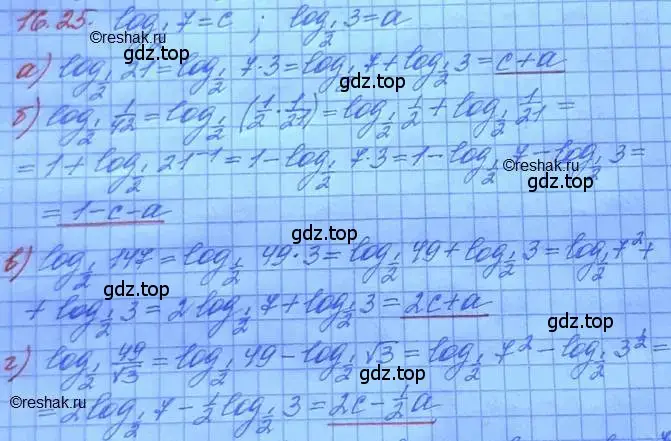 16.25. log_{1/2} 7 = c ; log_{1/2} 3 = a
©reshak.ru ©reshak.ru
а) log_{1/2} 21 = log_{1/2} 7·3 = log_{1/2} 7 + log_{1/2} 3 = c + a
gdz.top gdz.top
б) log_{1/2} 1/42 = log_{1/2} (1/2 · 1/21) = log_{1/2} 1/2 + log_{1/2} 1/21 =
= 1 + log_{1/2} 21^{-1} = 1 - log_{1/2} 7·3 = 1 - log_{1/2} 7 - log_{1/2} 3 =
gdz.top
= 1 - c - a
gdz.top
в) log_{1/2} 147 = log_{1/2} 49·3 = log_{1/2} 49 + log_{1/2} 3 = log_{1/2} 7^2 +
gdz.top
+ log_{1/2} 3 = 2 log_{1/2} 7 + log_{1/2} 3 = 2c + a
gdz.top
г) log_{1/2} 49/√3 = log_{1/2} 49 - log_{1/2} √3 = log_{1/2} 7^2 - log_{1/2} 3^{1/2} =
©reshak.ru ©reshak.ru
= 2 log_{1/2} 7 - 1/2 log_{1/2} 3 = 2c - 1/2 a
gdz.top